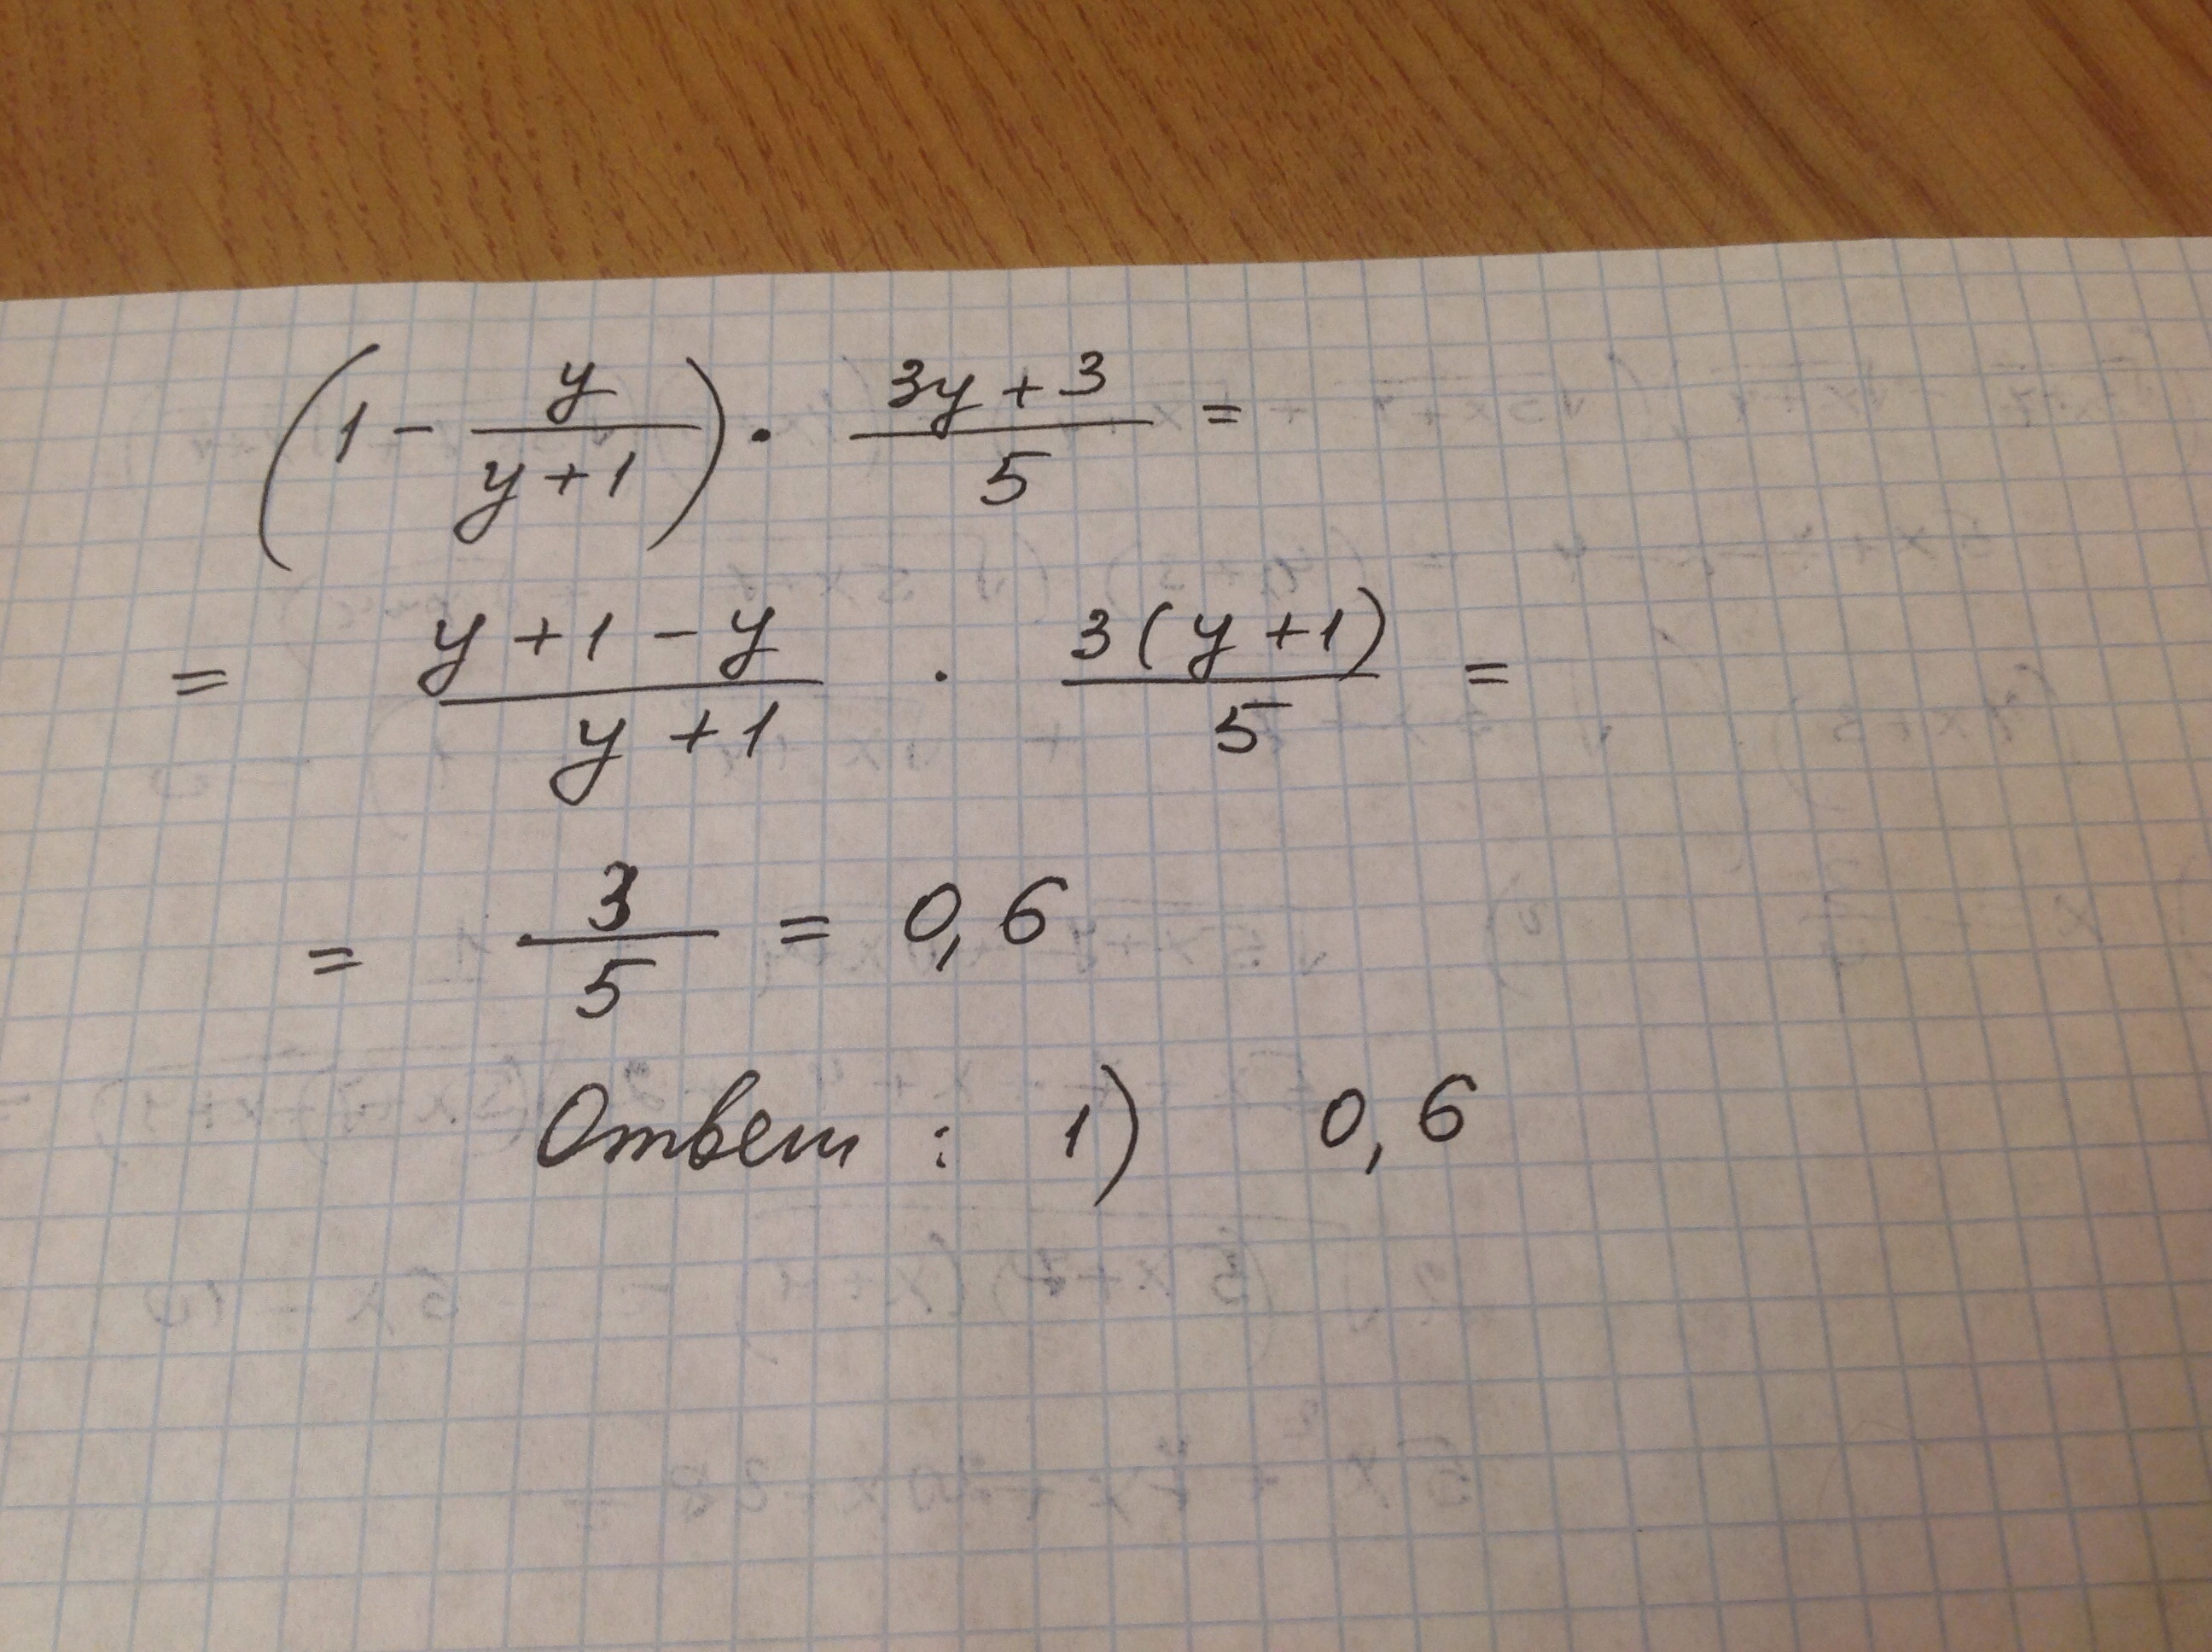 (1 - y/(y+1)) · (3y+3)/5 =
= (y+1-y)/(y+1) · 3(y+1)/5 =
= 3/5 = 0,6
Ответ : 1) 0,6